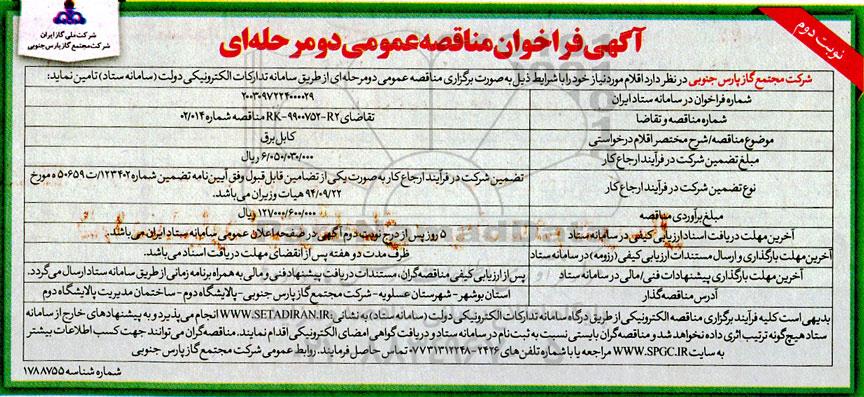 شرکت ملی گاز ایران
شرکت مجتمع گاز پارس جنوبی
نوبت دوم
آگهی فراخوان مناقصه عمومی دو مرحله‌ای
شرکت مجتمع گاز پارس جنوبی در نظر دارد اقلام مورد نیاز خود را با شرایط ذیل به صورت برگزاری مناقصه عمومی دو مرحله‌ای از طریق سامانه تدارکات الکترونیکی دولت (سامانه ستاد) تامین نماید:
شماره فراخوان در سامانه ستاد ایران ۲۰۰۳۰۹۷۲۲۴۰۰۰۰۲۹
شماره مناقصه و تقاضا تقاضای RK-۹۹۰۰۷۵۲-R۲ مناقصه شماره ۰۲/۰۱۴
موضوع مناقصه/شرح مختصر اقلام درخواستی کابل برق
مبلغ تضمین شرکت در فرآیند ارجاع کار ۶/۰۵۰/۰۳۰/۰۰۰ ریال
نوع تضمین شرکت در فرآیند ارجاع کار تضمین شرکت در فرآیند ارجاع کار به صورت یکی از تضامین قابل قبول وفق آیین نامه تضمین شماره ۱۲۳۴۰۲/ت ۵۰۶۵۹ ه مورخ
۹۴/۰۹/۲۲ هیات وزیران می‌باشد.
مبلغ برآوردی مناقصه ۱۲۷/۰۰۰/۶۰۰/۰۰۰ ریال
آخرین مهلت دریافت اسناد ارزیابی کیفی در سامانه ستاد ۵ روز پس از درج نوبت دوم آگهی در صفحه اعلان عمومی سامانه ستاد ایران می‌باشد.
آخرین مهلت بارگذاری و ارسال مستندات ارزیابی کیفی (رزومه) در سامانه ستاد ظرف مدت دو هفته پس از انقضای مهلت دریافت اسناد می‌باشد.
آخرین مهلت بارگذاری پیشنهادات فنی/مالی در سامانه ستاد پس از ارزیابی کیفی مناقصه‌گران، مستندات دریافت پیشنهاد فنی و مالی به همراه برنامه زمانی از طریق سامانه ستاد ارسال می‌گردد.
آدرس مناقصه‌گذار استان بوشهر- شهرستان عسلویه- شرکت مجتمع گاز پارس جنوبی- پالایشگاه دوم- ساختمان مدیریت پالایشگاه دوم
بدیهی است کلیه فرآیند برگزاری مناقصه الکترونیکی از طریق درگاه سامانه تدارکات الکترونیکی دولت (سامانه ستاد) به نشانی: WWW.SETADIRAN.IR انجام می‌پذیرد و به پیشنهادهای خارج از سامانه
ستاد هیچ گونه ترتیب اثری داده نخواهد شد و مناقصه گران بایستی نسبت به ثبت نام در سامانه ستاد و دریافت گواهی امضای الکترونیکی اقدام نمایند. مناقصه‌گران می‌توانند جهت کسب اطلاعات بیشتر
به سایت WWW.SPGC.IR مراجعه یا با شماره تلفن‌های ۲۴۲۶-۰۷۷۳۱۳۱۲۲۴۸ تماس حاصل فرمایند. روابط عمومی شرکت مجتمع گاز پارس جنوبی
شماره شناسه ۱۷۸۸۷۵۵